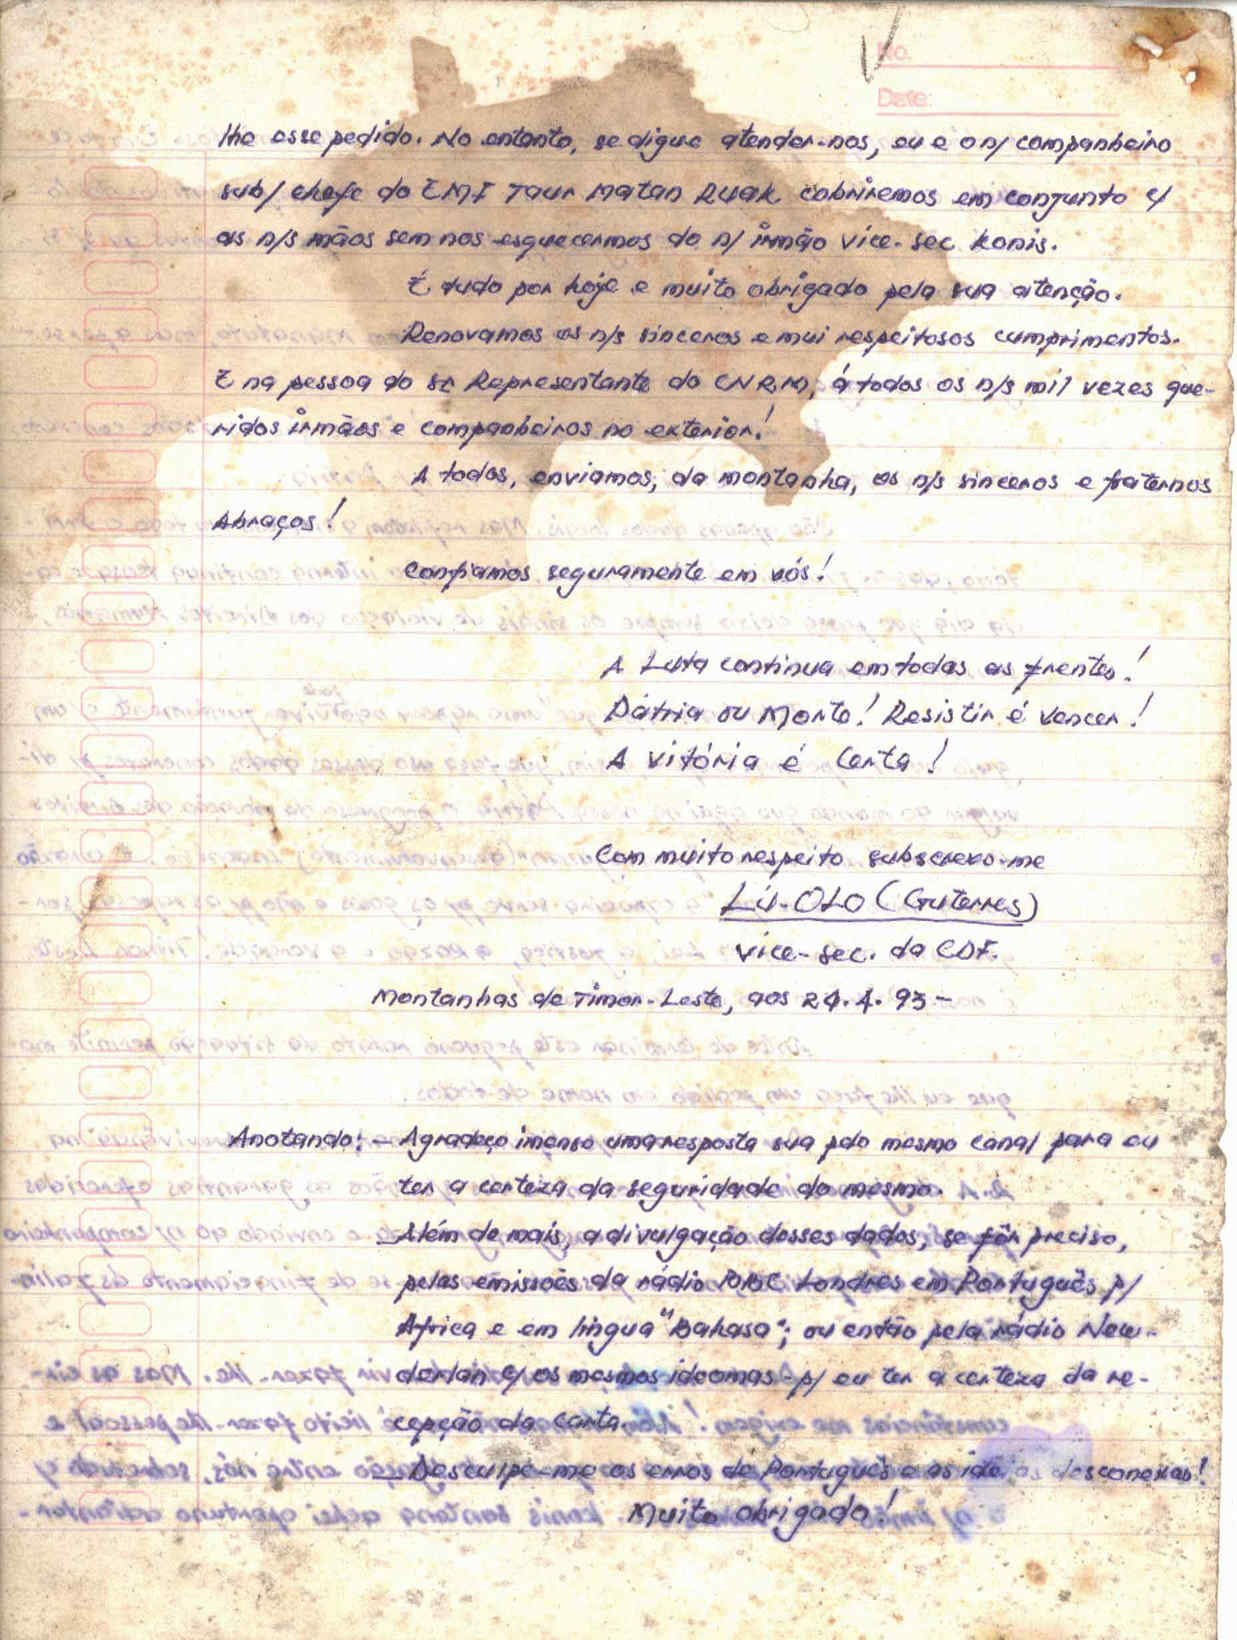 No.
Date:
lhe esse pedido. No entanto, se digne atender-nos, eu e o n/ companheiro
sub/ chefe do EMF Taur Matan Ruak cobriremos em conjunto c/
as n/s mãos sem nos esquecermos do n/ irmão vice-sec Konis.
É tudo por hoje e muito obrigado pela sua atenção.
Renovamos os n/s sinceros e mui respeitosos cumprimentos.
E na pessoa do sr Representante do CNRM, á todos os n/s mil vezes que-
ridos irmãos e companheiros no exterior!
A todos, enviamos, da montanha, os n/s sinceros e fraternos
Abraços!
Confiamos seguramente em vós!
A Luta continua em todas as frentes!
Pátria ou Morte! Resistir é Vencer!
A vitória é Certa!
Com muito respeito subscrevo-me
Lú-OLO (Guterres)
vice-sec. da CDF.
Montanhas de Timor-Leste, aos 24.4.93-
Anotando: - Agradeço imenso uma resposta sua pelo mesmo canal para eu
ter a certeza da seguridade do mesmo.
- Além de mais, a divulgação desses dados, se fôr preciso,
pelas emissões da rádio BBC Londres em Português p/
África e em língua "Bahasa"; ou então pela rádio New-
derlan c/ os mesmos ideomas - p/ eu ter a certeza da re-
cepção da Carta.
- Desculpe-me os erros de Português e as ideias desconexas!
Muito obrigado!